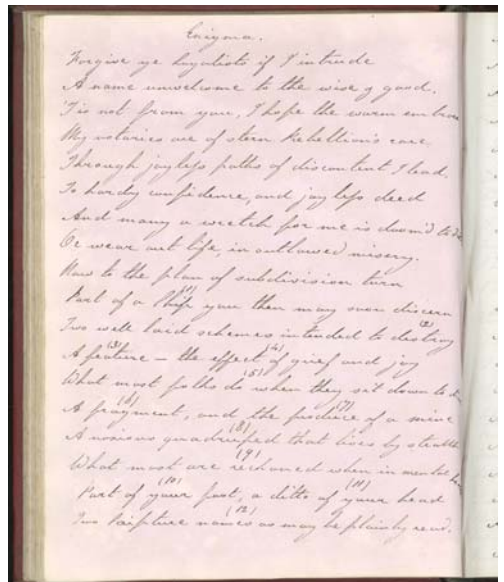 Enigma.
Forgive ye loyalists if I intrude
A name unwelcome to the wise & good.
'Tis not from you, I hope the warm embrace
My votaries are of stern Rebellion's race
Through joyless paths of discontent I lead
To hardy confidence, and joyless deed
And many a wretch for me is doom'd to
Or wear out life, in outlawed misery.
Now to the plan of subdivision turn
Part of a Ship you then may soon discern
(1) (2)
Two well laid schemes intended to destroy
(3) (4)
A feature – the effect of grief and joy
(5)
What most folks do when they sit down to
(6) (7)
A fragment, and the produce of a mine
(8)
A noxious quadruped that lives by stealth
(9)
What most are reckoned when in mental
(10) (11)
Part of your foot, a ditto of your head
(12)
Two Scripture names as may be plainly read.